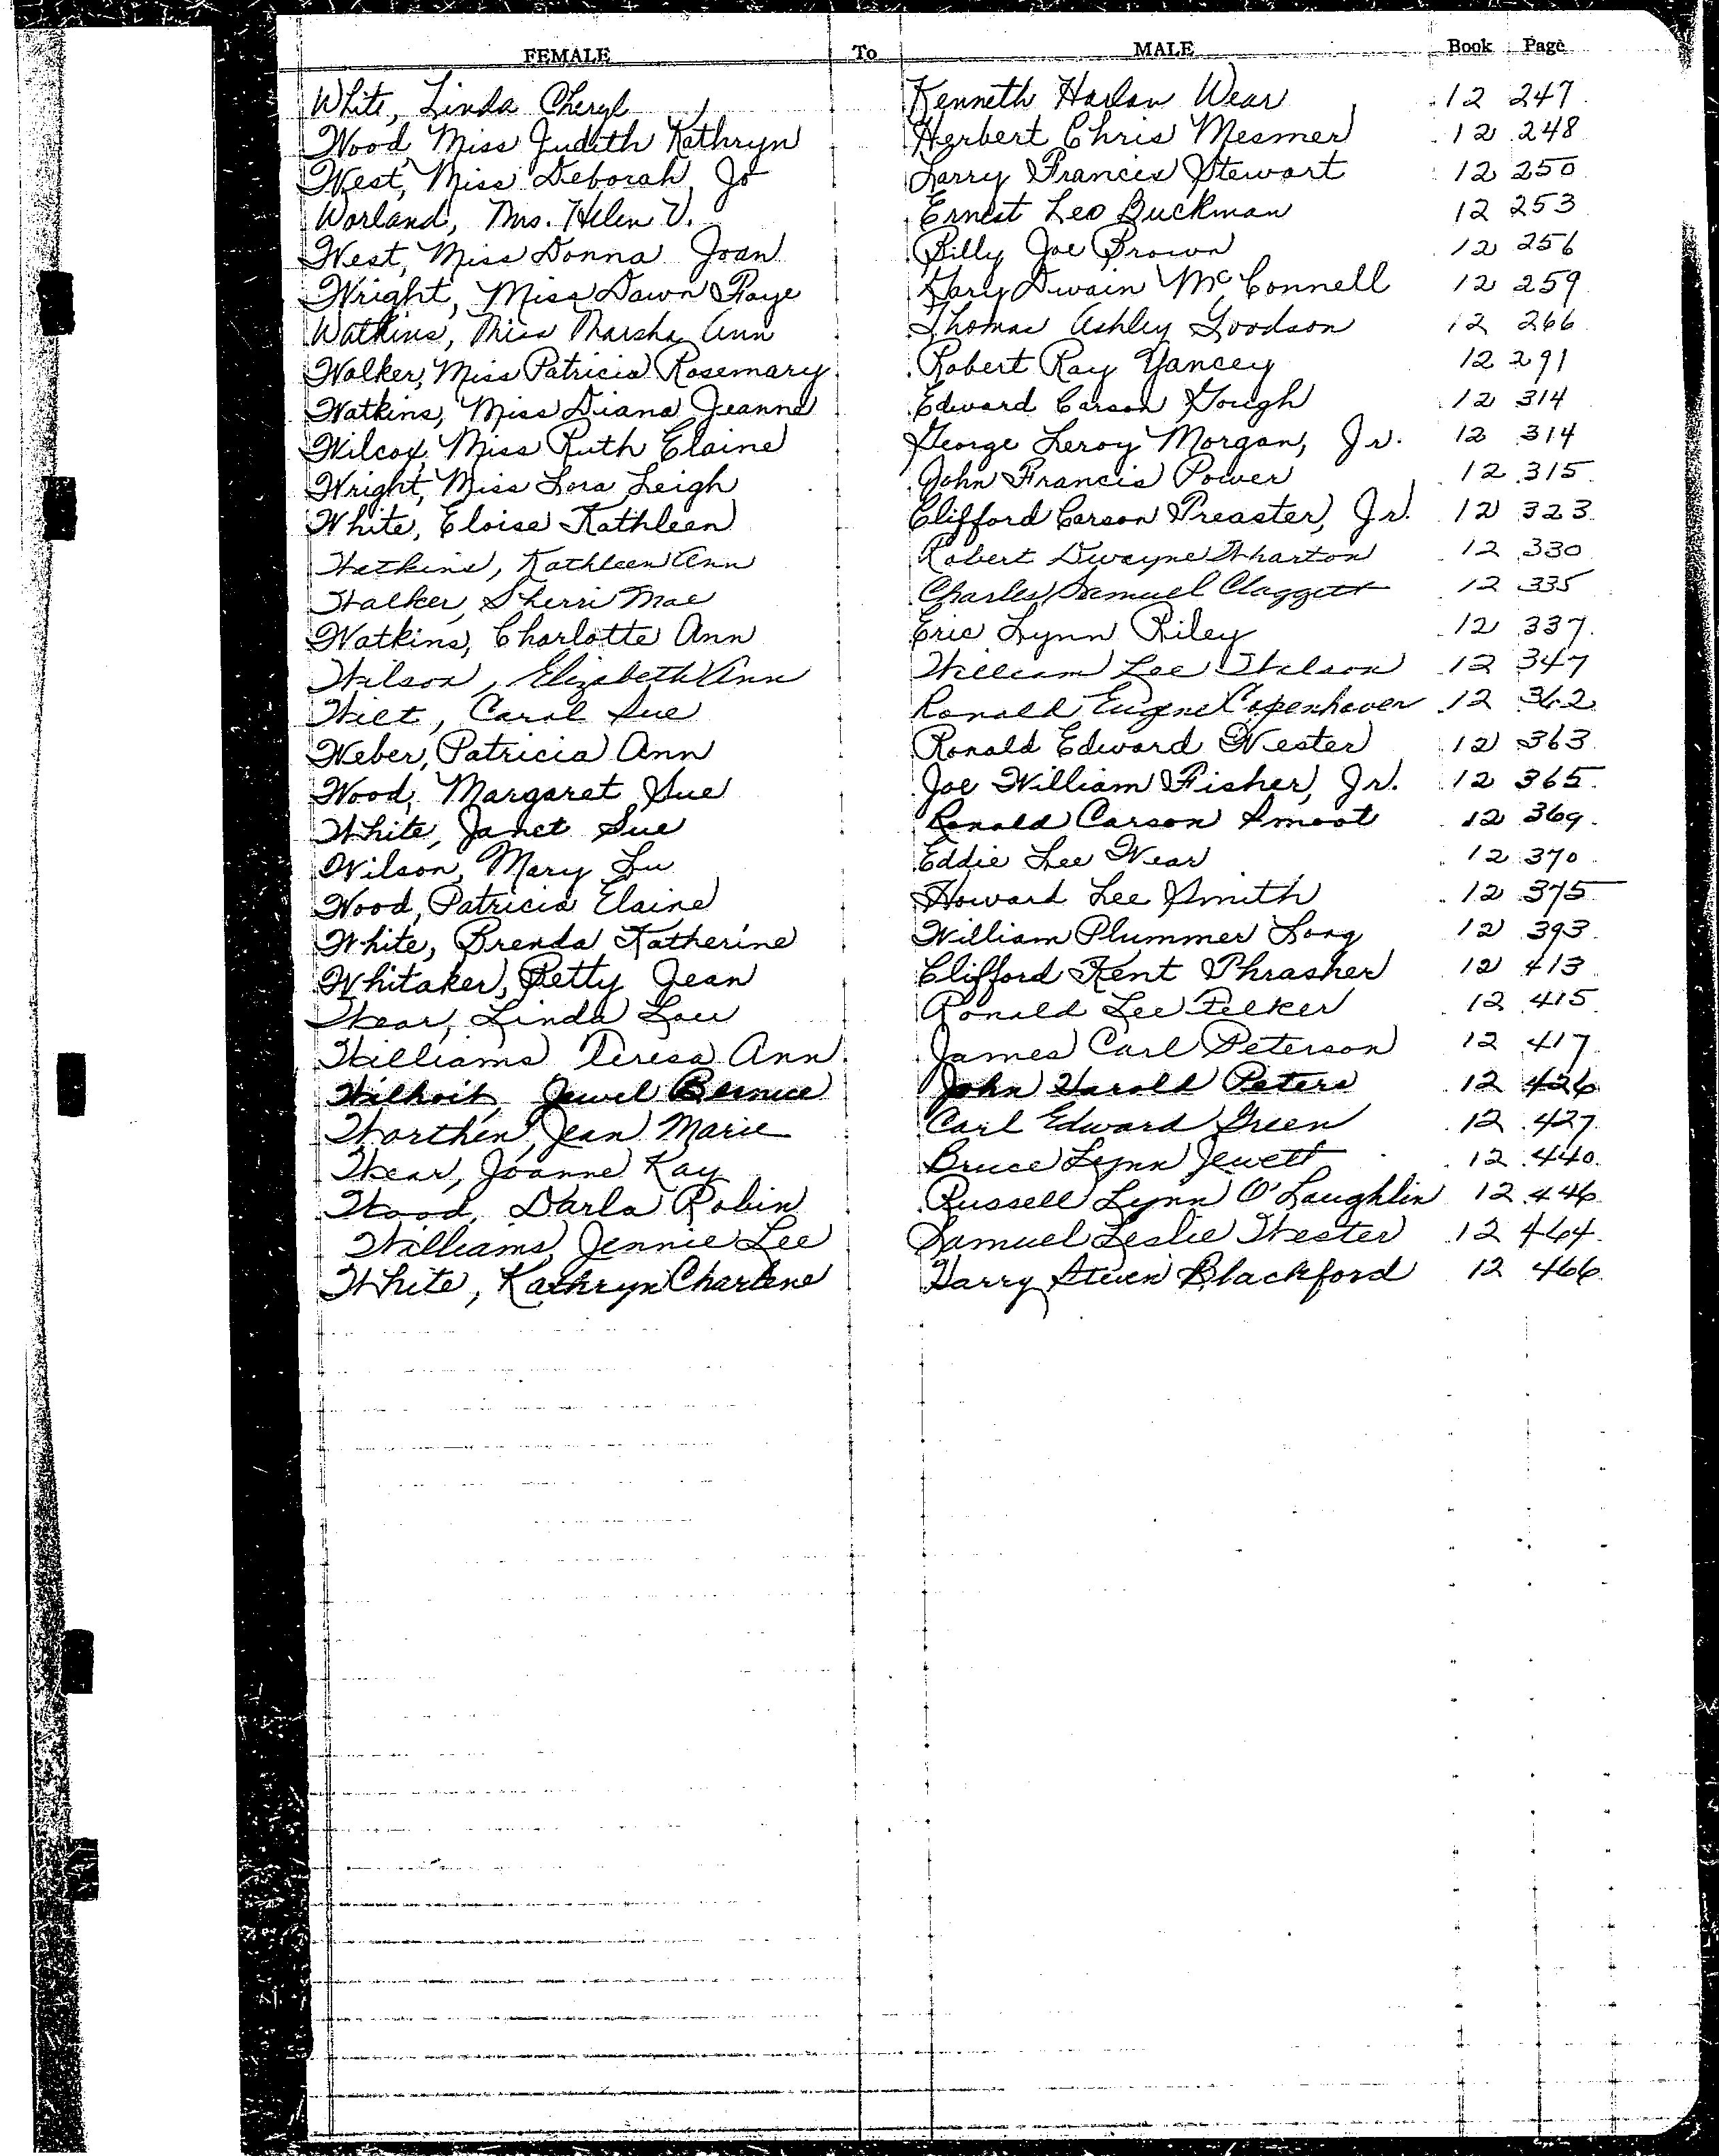 FEMALE To MALE Book Page
White, Linda Cheryl Kenneth Harlan Wear 12 247
Wood, Miss Judith Kathryn Herbert Chris Mesmer 12 248
West, Miss Deborah Jo Larry Francis Stewart 12 250
Worland, Mrs. Helen V. Ernest Leo Buckman 12 253
West, Miss Donna Joan Billy Joe Brown 12 256
Wright, Miss Dawn Faye Gary Dwain McConnell 12 259
Watkins, Miss Marsha Ann Thomas Ashley Goodson 12 266
Walker, Miss Patricia Rosemary Robert Ray Yancey 12 291
Watkins, Miss Diana Jeanne Edward Carson Gough 12 314
Wilcox, Miss Ruth Elaine George Leroy Morgan, Jr. 12 314
Wright, Miss Lora Leigh John Francis Power 12 315
White, Eloise Kathleen Clifford Carson Preaster, Jr. 12 323
Watkins, Kathleen Ann Robert Dwayne Wharton 12 330
Walker, Sherri Mae Charles Samuel Claggett 12 335
Watkins, Charlotte Ann Eric Lynn Riley 12 337
Wilson, Elizabeth Ann William Lee Wilson 12 347
Wilt, Carol Sue Ronald Eugene Copenhaver 12 362
Weber, Patricia Ann Ronald Edward Wester 12 363
Wood, Margaret Sue Joe William Fisher, Jr. 12 365
White, Janet Sue Ronald Carson Smoot 12 369
Wilson, Mary Lu Eddie Lee Wear 12 370
Wood, Patricia Elaine Howard Lee Smith 12 375
White, Brenda Katherine William Plummer Long 12 393
Whitaker, Betty Jean Clifford Kent Thrasher 12 413
Wear, Linda Lou Ronald Lee Felker 12 415
Williams Teresa Ann James Carl Peterson 12 417
Wilhoit, Jewel Bernice John Harold Peters 12 426
Worthen, Jean Marie Carl Edward Green 12 427
Wear, Joanne Kay Bruce Lynn Jewett 12 440
Wood, Darla Robin Russell Lynn O'Laughlin 12 446
Williams, Jennie Lee Samuel Leslie Wester 12 464
White, Kathryn Charlene Harry Steven Blackford 12 466